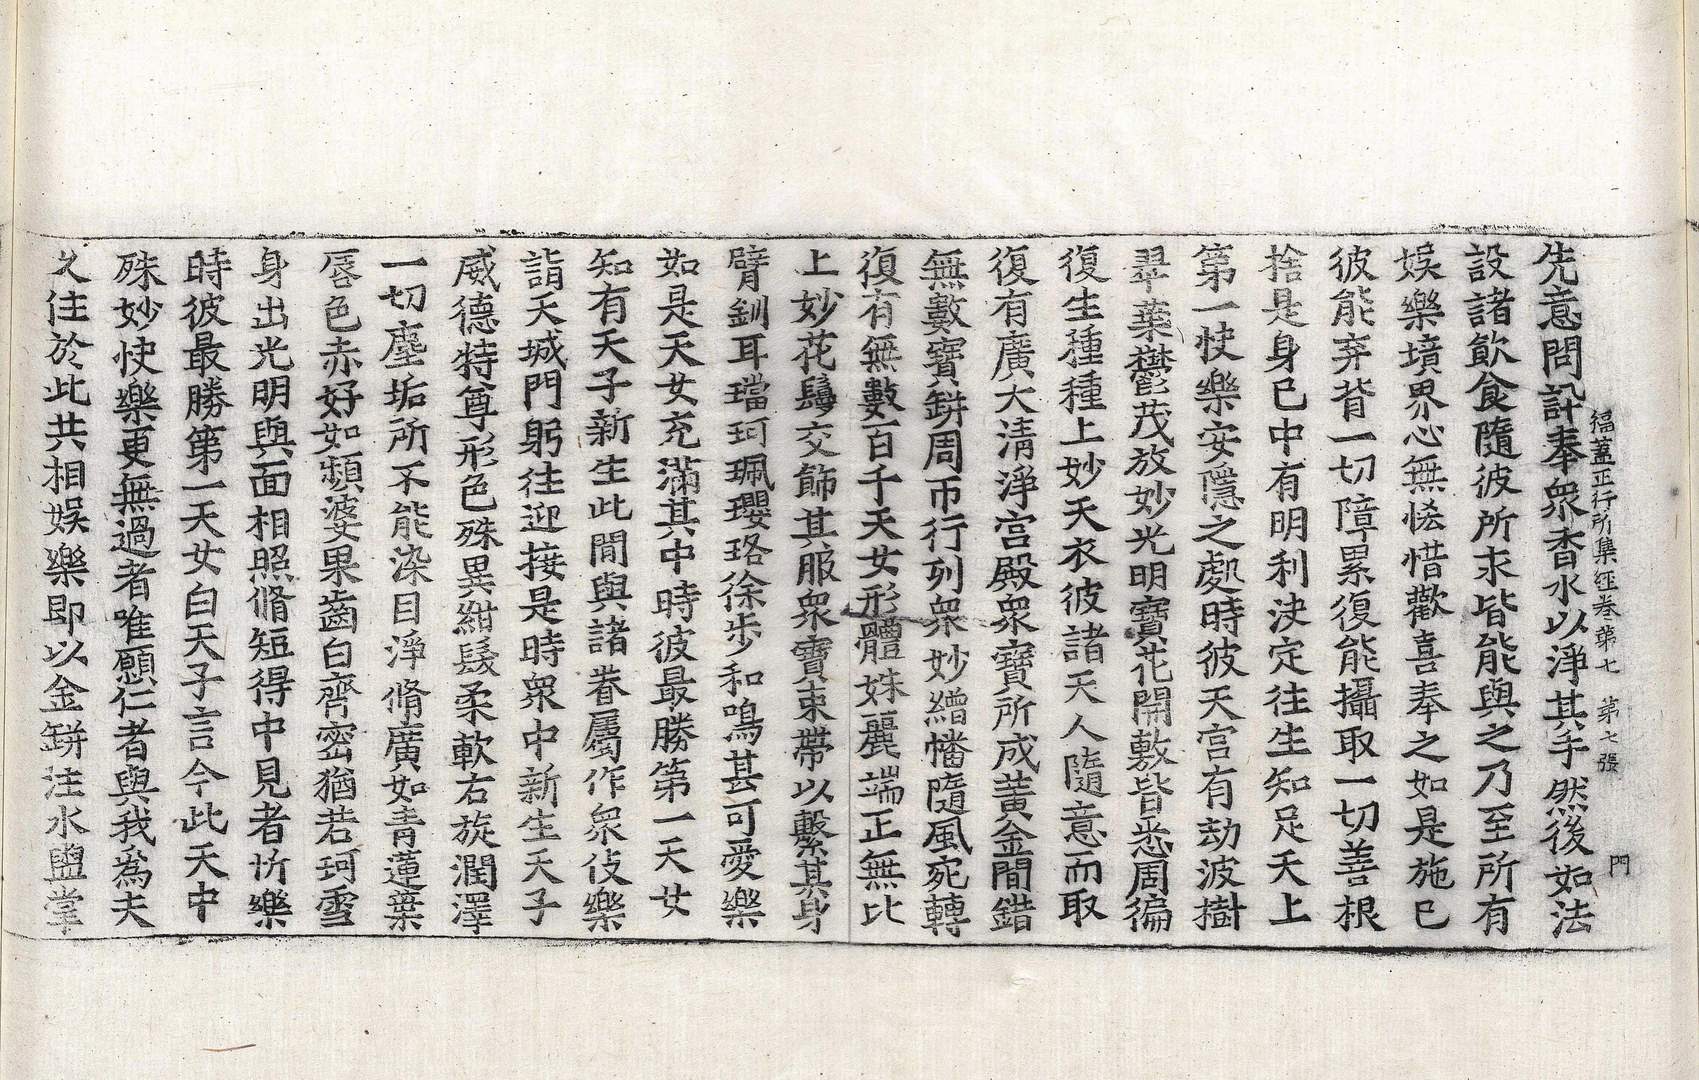 福蓋正行所集經卷第七　第七張　門
先意問訊奉衆香水以淨其手然後如法
設諸飲食隨彼所求皆能與之乃至所有
娛樂境界心無悋惜歡喜奉之如是施已
彼能弃背一切障累復能攝取一切善根
捨是身已中有明利決定往生知足天上
第一快樂安隱之處時彼天宮有劫波樹
翠葉欝茂放妙光明寶花開敷皆悉周徧
復生種種上妙天衣彼諸天人隨意而取
復有廣大清淨宮殿衆寶所成黃金間錯
無數寶缾周帀行列衆妙繒幡隨風宛轉
復有無數百千天女形體姝麗端正無比
上妙花鬘交飾其服衆寶束帶以繫其身
臂釧耳璫珂珮瓔珞徐步和鳴甚可愛樂
如是天女充滿其中時彼最勝第一天女
知有天子新生此間與諸眷屬作衆伎樂
詣天城門躬往迎接是時衆中新生天子
威德特尊形色殊異紺髮柔軟右旋潤澤
一切塵垢所不能染目淨脩廣如青蓮葉
脣色赤好如頻婆果齒白齊密猶若珂雪
身出光明與面相照脩短得中見者忻樂
時彼最勝第一天女白天子言今此天中
殊妙快樂更無過者唯願仁者與我為夫
久住於此共相娛樂即以金缾注水盥掌